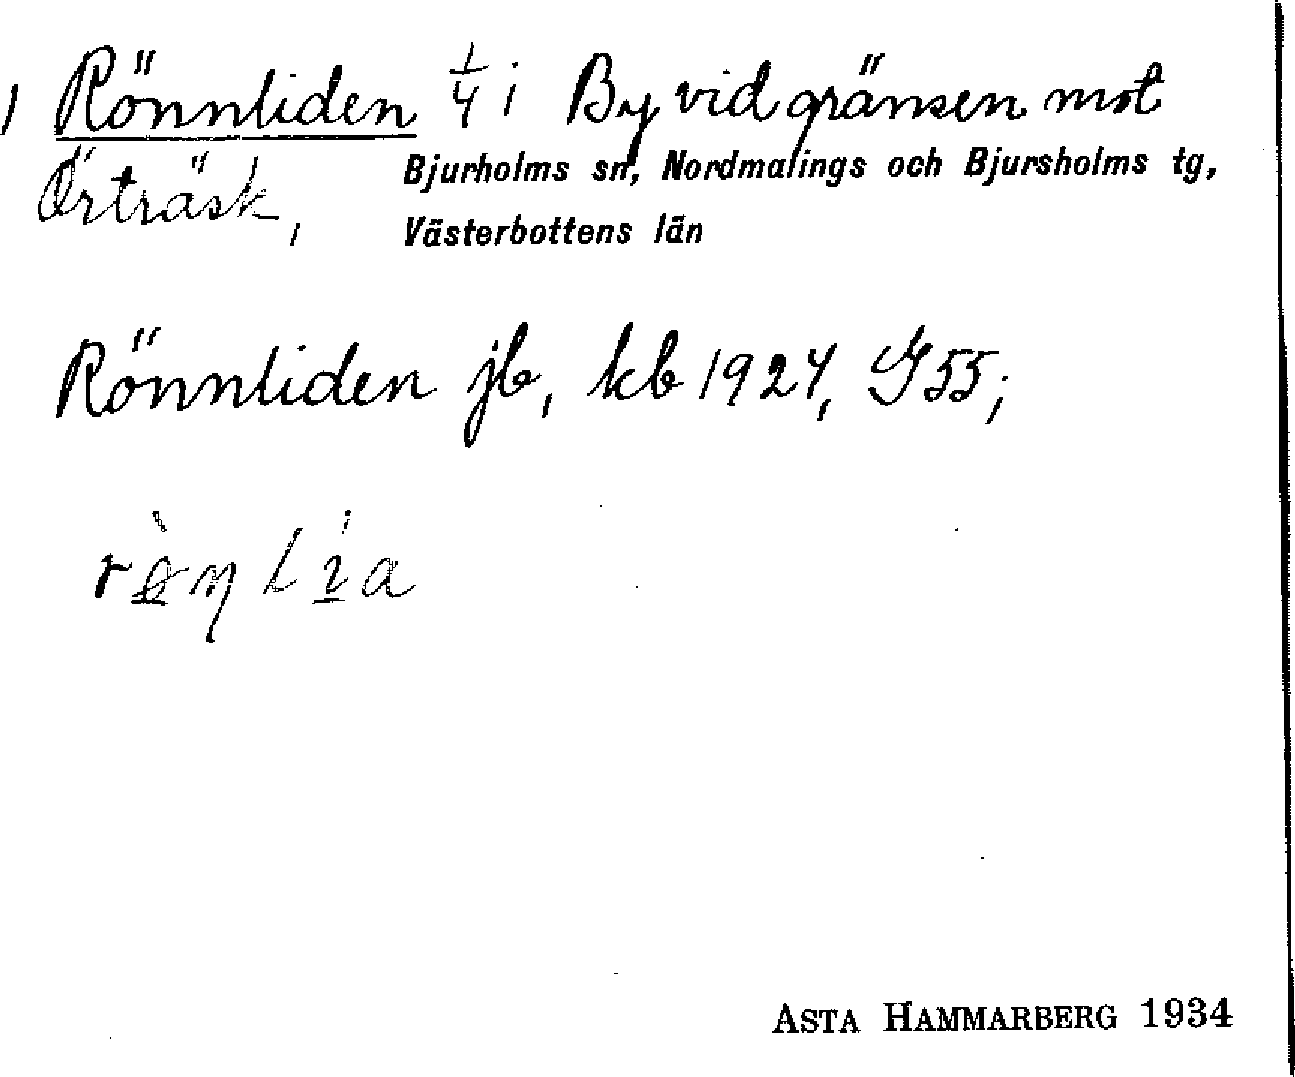 ) Rönnliden 1/4 i By vid gränsen mot
Örträsk, Bjurholms sn, Nordmalings och Bjursholms tg,
Västerbottens län
Rönnliden jb, kb 1924, G55;
ASTA HAMMARBERG 1934